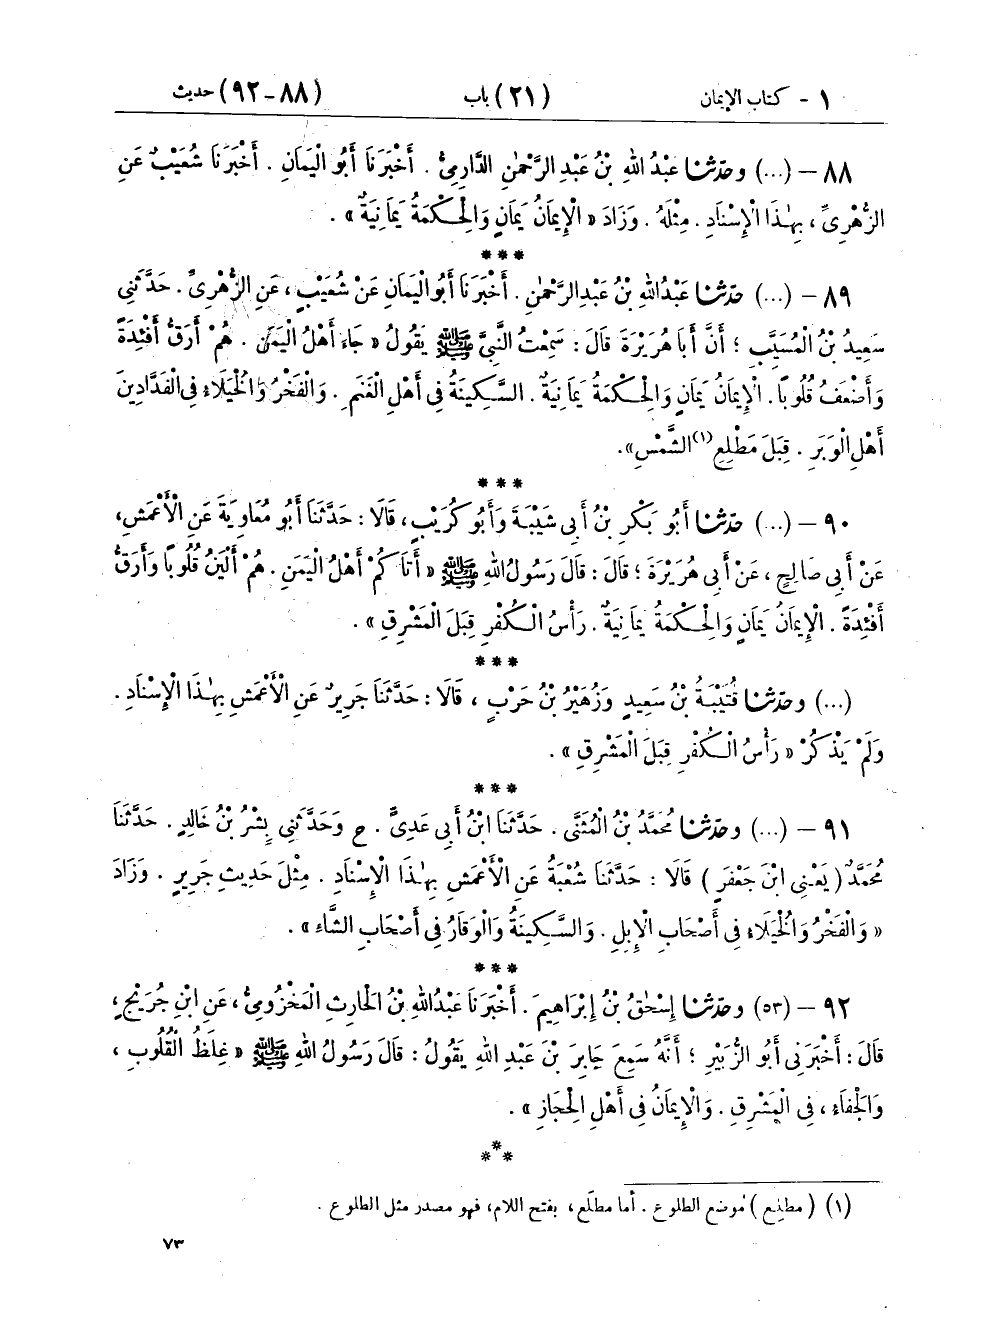 ١ - كتاب الإيمان (٢١) باب (٨٨-٩٢) حديث
٨٨ - (...) وحدّثنا عَبْدُ اللهِ بْنُ عَبْدِ الرَّحْمٰنِ الدَّارِمِىُّ . أَخْبَرَنَا أَبُو الْيَمَانِ . أَخْبَرَنَا شُعَيْبٌ عَنِ
الزُّهْرِىِّ ، بِهٰذَا الْإِسْنَادِ . مِثْلَهُ . وَزَادَ « الْإِيمَانُ يَمَانٍ وَالْحِكْمَةُ يَمَانِيَةٌ » .
***
٨٩ - (...) حدّثنا عَبْدُ اللهِ بْنُ عَبْدِ الرَّحْمٰنِ . أَخْبَرَنَا أَبُو الْيَمَانِ عَنْ شُعَيْبٍ ، عَنِ الزُّهْرِىِّ . حَدَّثَنِى
سَعِيدُ بْنُ الْمُسَيَّبِ ؛ أَنَّ أَبَا هُرَيْرَةَ قَالَ : سَمِعْتُ النَّبِىَّ ﷺ يَقُولُ « جَاءَ أَهْلُ الْيَمَنِ . هُمْ أَرَقُّ أَفْئِدَةً
وَأَضْعَفُ قُلُوبًا . الْإِيمَانُ يَمَانٍ وَالْحِكْمَةُ يَمَانِيَةٌ . السَّكِينَةُ فِى أَهْلِ الْغَنَمِ . وَالْفَخْرُ وَالْخُيَلَاءُ فِى الْفَدَّادِينَ
أَهْلِ الْوَبَرِ . قِبَلَ مَطْلِعِ (١) الشَّمْسِ» .
***
٩٠ - (...) حدّثنا أَبُو بَكْرِ بْنُ أَبِى شَيْبَةَ وَأَبُو كُرَيْبٍ ، قَالَا : حَدَّثَنَا أَبُو مُعَاوِيَةَ عَنِ الْأَعْمَشِ ،
عَنْ أَبِى صَالِحٍ ، عَنْ أَبِى هُرَيْرَةَ ؛ قَالَ : قَالَ رَسُولُ اللهِ ﷺ « أَتَاكُمْ أَهْلُ الْيَمَنِ . هُمْ أَلْيَنُ قُلُوبًا وَأَرَقُّ
أَفْئِدَةً . الْإِيمَانُ يَمَانٍ وَالْحِكْمَةُ يَمَانِيَةٌ . رَأْسُ الْكُفْرِ قِبَلَ الْمَشْرِقِ » .
***
(...) وحدّثنا قُتَيْبَةُ بْنُ سَعِيدٍ وَزُهَيْرُ بْنُ حَرْبٍ ، قَالَا : حَدَّثَنَا جَرِيرٌ عَنِ الْأَعْمَشِ بِهٰذَا الْإِسْنَادِ .
وَلَمْ يَذْكُرْ « رَأْسُ الْكُفْرِ قِبَلَ الْمَشْرِقِ » .
***
٩١ - (...) وحدّثنا مُحَمَّدُ بْنُ الْمُثَنَّى . حَدَّثَنَا ابْنُ أَبِى عَدِىٍّ . ح وَحَدَّثَنِى بِشْرُ بْنُ خَالِدٍ . حَدَّثَنَا
مُحَمَّدٌ ( يَعْنِى ابْنَ جَعْفَرٍ ) قَالَا : حَدَّثَنَا شُعْبَةُ عَنِ الْأَعْمَشِ بِهٰذَا الْإِسْنَادِ . مِثْلَ حَدِيثِ جَرِيرٍ . وَزَادَ
« وَالْفَخْرُ وَالْخُيَلَاءُ فِى أَصْحَابِ الْإِبِلِ . وَالسَّكِينَةُ وَالْوَقَارُ فِى أَصْحَابِ الشَّاءِ » .
***
٩٢ - (٥٣) وحدّثنا إِسْحٰقُ بْنُ إِبْرَاهِيمَ . أَخْبَرَنَا عَبْدُ اللهِ بْنُ الْحَارِثِ الْمَخْزُومِىُّ ، عَنِ ابْنِ جُرَيْجٍ ،
قَالَ : أَخْبَرَنِى أَبُو الزُّبَيْرِ ؛ أَنَّهُ سَمِعَ جَابِرَ بْنَ عَبْدِ اللهِ يَقُولُ : قَالَ رَسُولُ اللهِ ﷺ « غِلَظُ الْقُلُوبِ ،
وَالْجَفَاءُ ، فِى الْمَشْرِقِ . وَالْإِيمَانُ فِى أَهْلِ الْحِجَازِ » .
***
(١) ( مطلِع ) موضع الطلوع . أما مطلَع ، بفتح اللام ، فهو مصدر مثل الطلوع .
٧٣